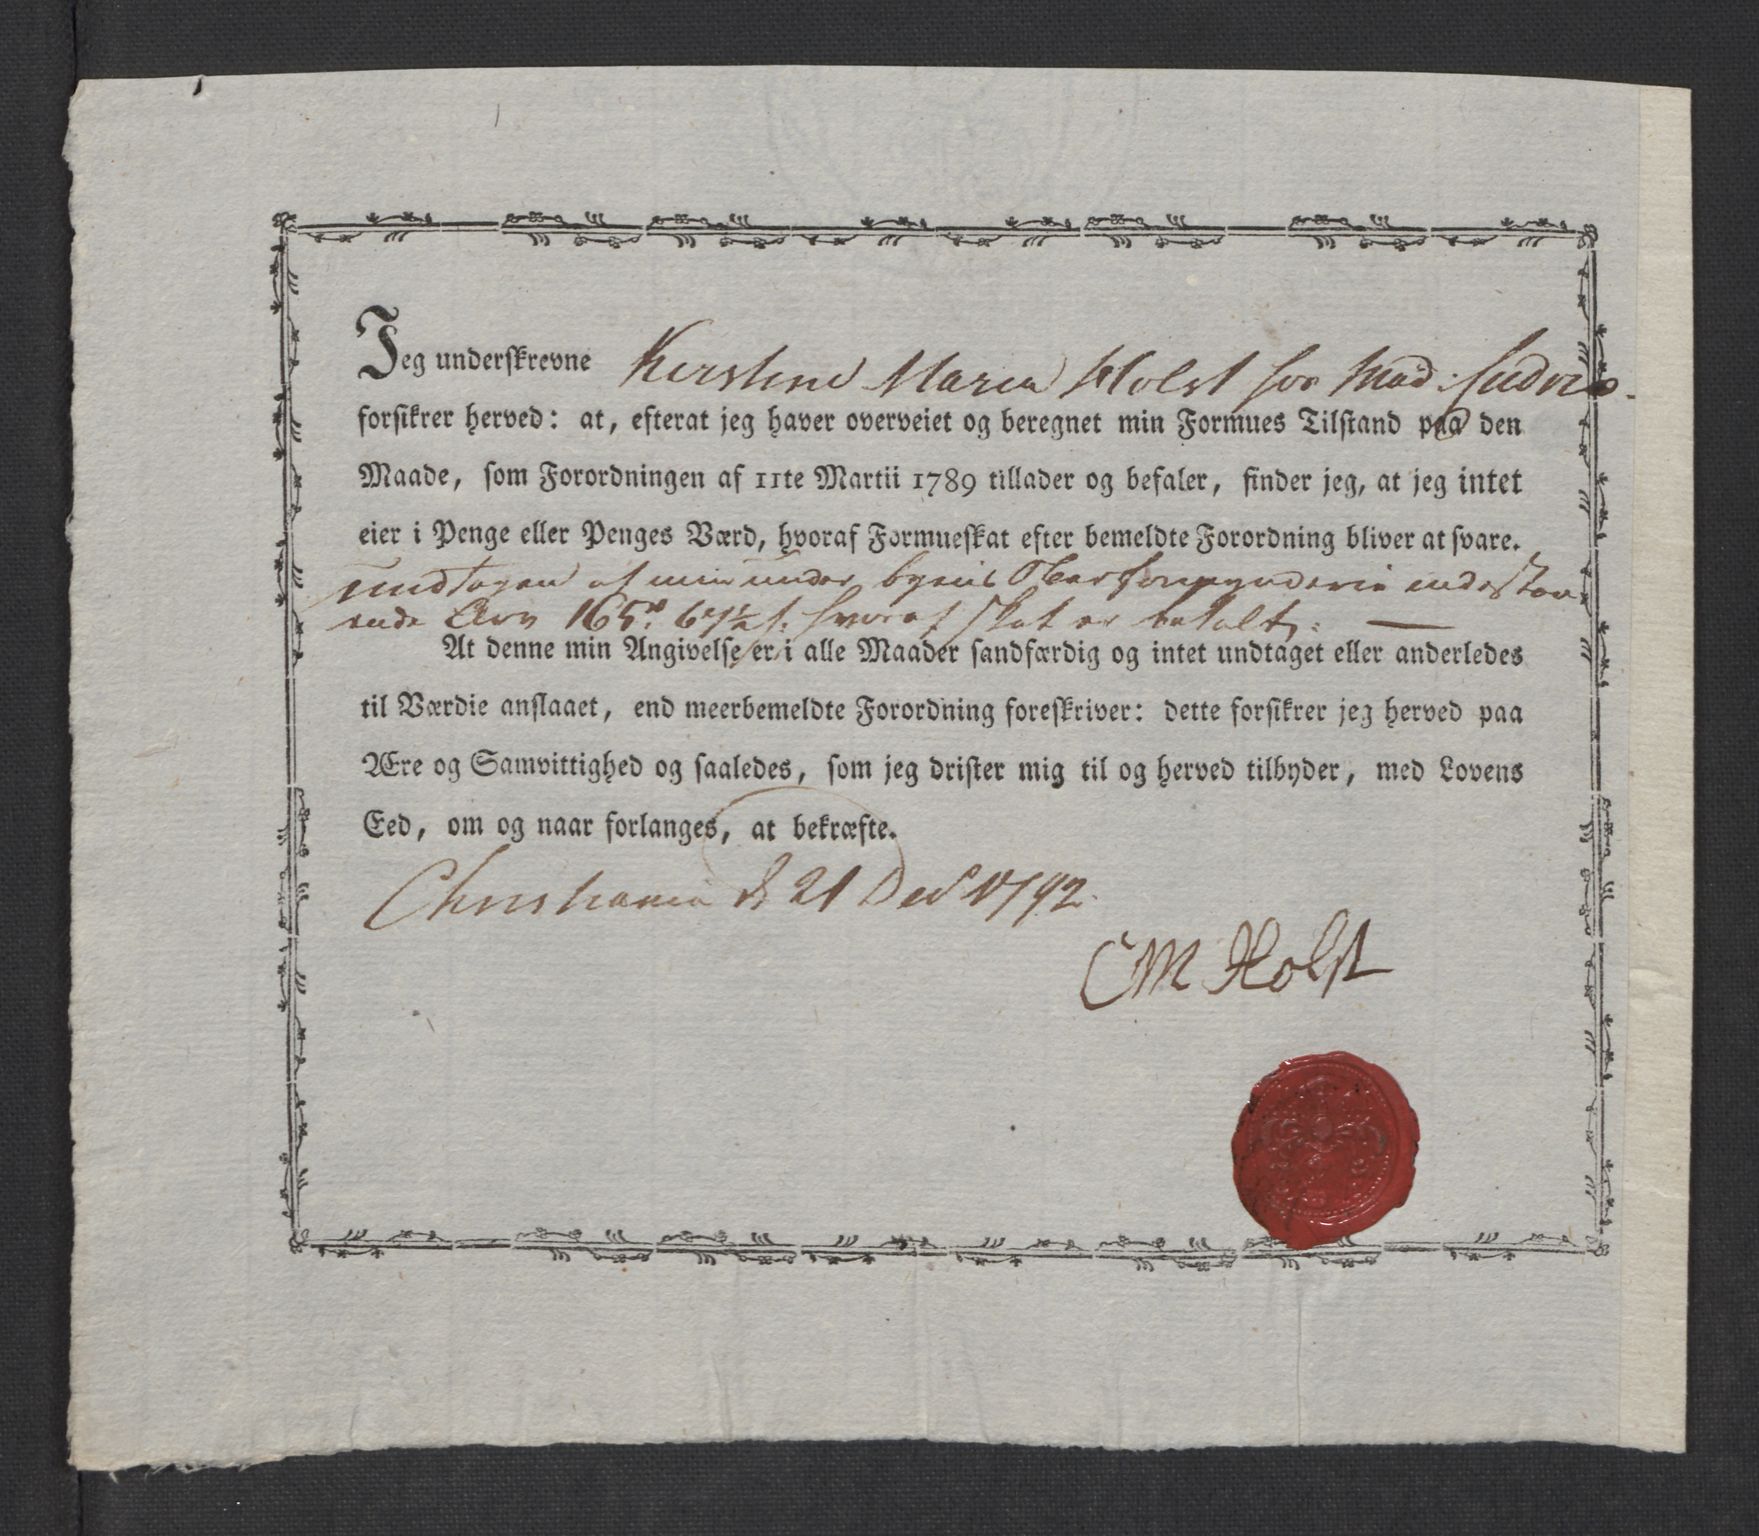 Jeg underskrevne Kirstine Maria Holst hos Mad:
forsikrer herved: at, efterat jeg haver overveiet og beregnet min Formues Tilstand paa den
Maade, som Forordningen af 11te Martii 1789 tillader og befaler, finder jeg, at jeg intet
eier i Penge eller Penges Værd, hvoraf Formueskat efter bemeldte Forordning bliver at svare.
undtagen af min under byens Overformynderie indestaa
ende Arv 165 hvoraf Skat er betalt.
At denne min Angivelse er i alle Maader sandfærdig og intet undtaget eller anderledes
til Værdie anslaaet, end meerbemeldte Forordning foreskriver: dette forsikrer jeg herved paa
Ære og Samvittighed og saaledes, som jeg drister mig til og herved tilbyder, med Lovens
Eed, om og naar forlanges, at bekræfte.
Christiania d 21 Dec 1792.
CM Holst